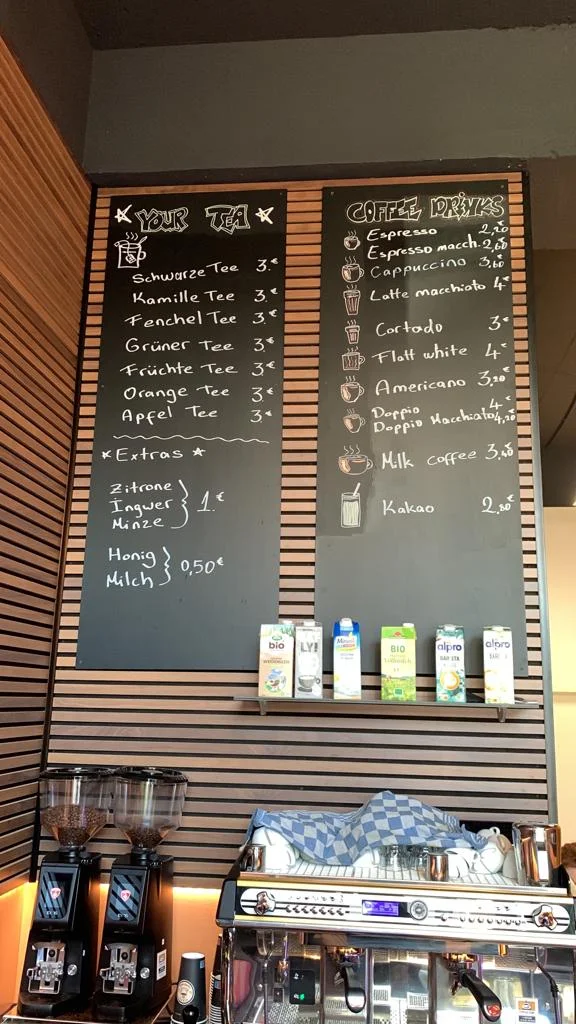 YOUR TEA
Schwarze Tee 3.€
Kamille Tee 3.€
Fenchel Tee 3.€
Grüner Tee 3.€
Früchte Tee 3.€
Orange Tee 3.€
Apfel Tee 3.€
Extras
Zitrone
İngwer
Minze
1.€
Honig
Milch
0,50€
COFFEE DRiNKS
Espresso 2,20€
Espresso macch. 2,60€
Cappuccino 3,60€
Latte macchiato 4€
Cortado 3€
Flatt white 4€
Americano 3,20€
Doppio 4€
Doppio Macchiato 4,20€
Milk coffee 3,40€
Kakao 2,80€
bio
LY!
BIO
Vollmilch
alpro
BARISTA
alpro